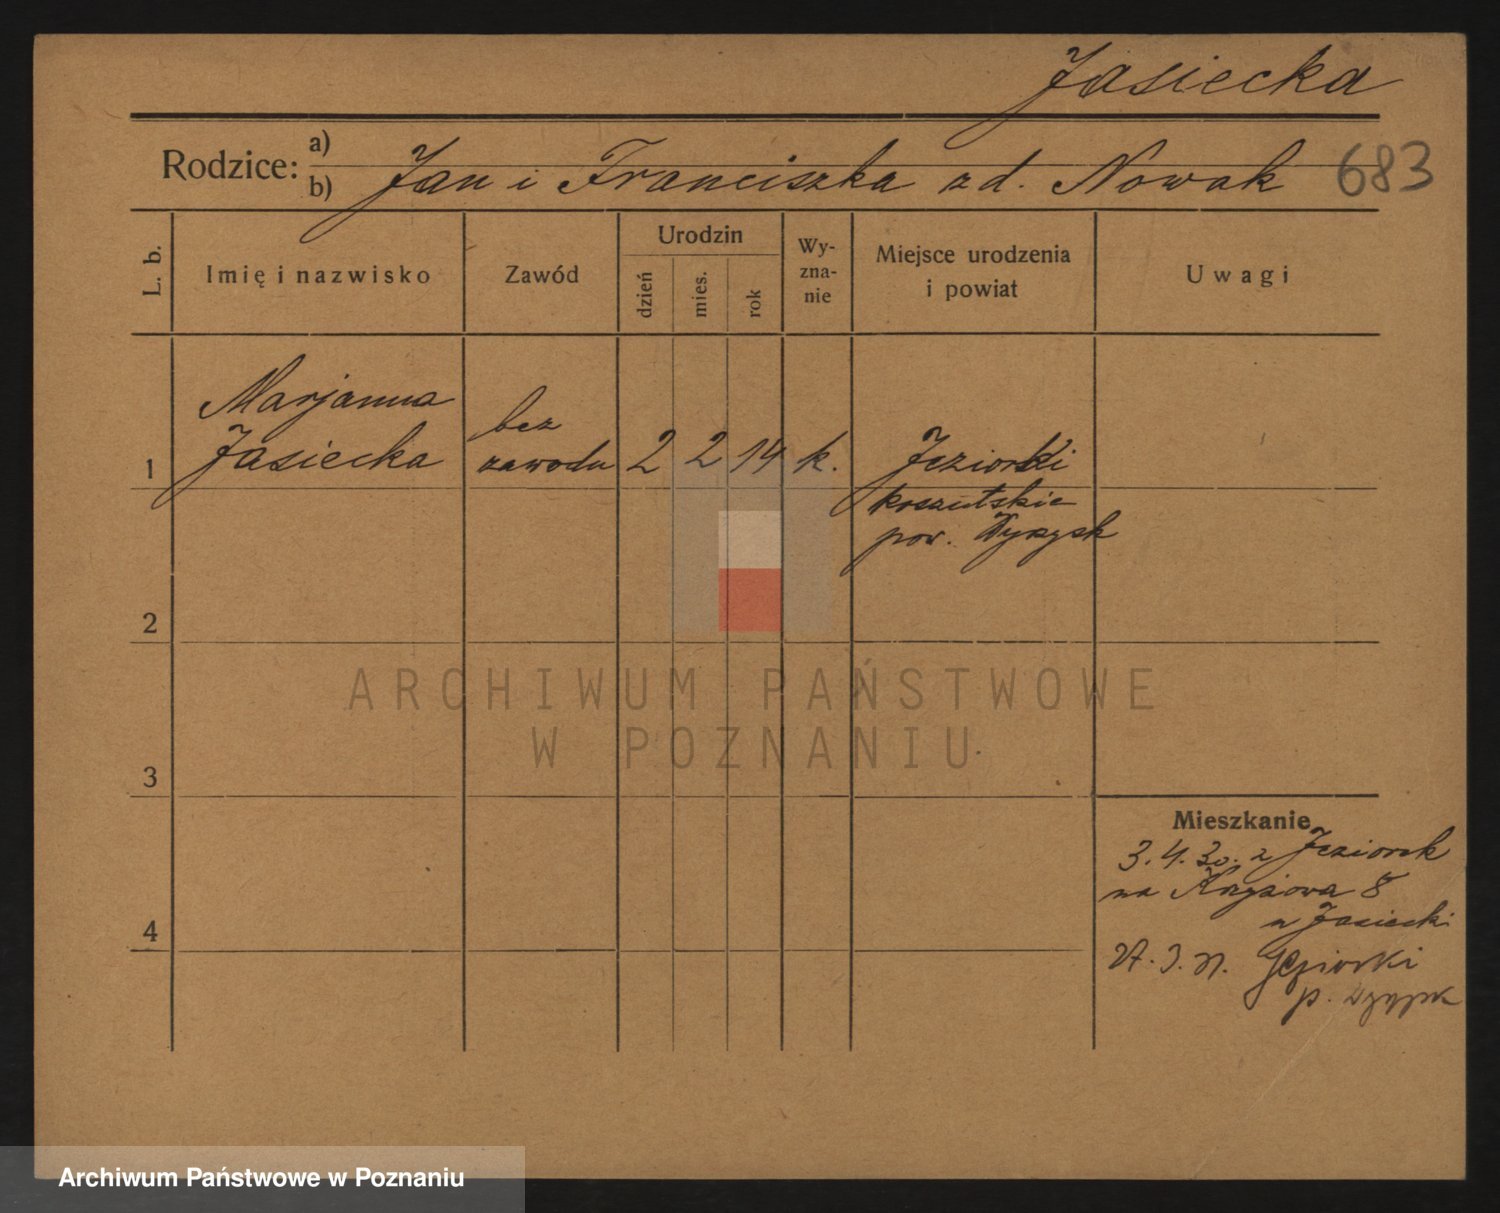 Jasiecka
Rodzice: a)
b) Jan i Franciszka zd. Nowak 683
L. b.
Imię i nazwisko
Zawód
Urodzin
dzień
mies.
rok
Wy-
zna-
nie
Miejsce urodzenia
i powiat
Uwagi
Marjanna
Jasiecka
bez
zawodu
1
2 2 14 k.
Jeziorki
koszutskie
pow. Wyrzysk
2
3
4
Mieszkanie
3.4.30. z Jeziorek
na Krzyżowa 8
u Jasiecki
Jeziorki
p.
ARCHIWUM PAŃSTWOWE
W POZNANIU
Archiwum Państwowe w Poznaniu